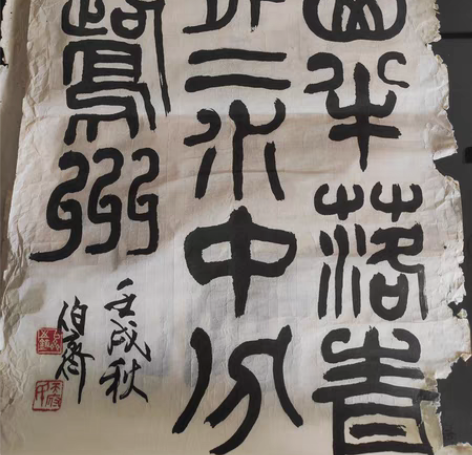 山半落青
二水中分
鷺州
壬戌秋
伯